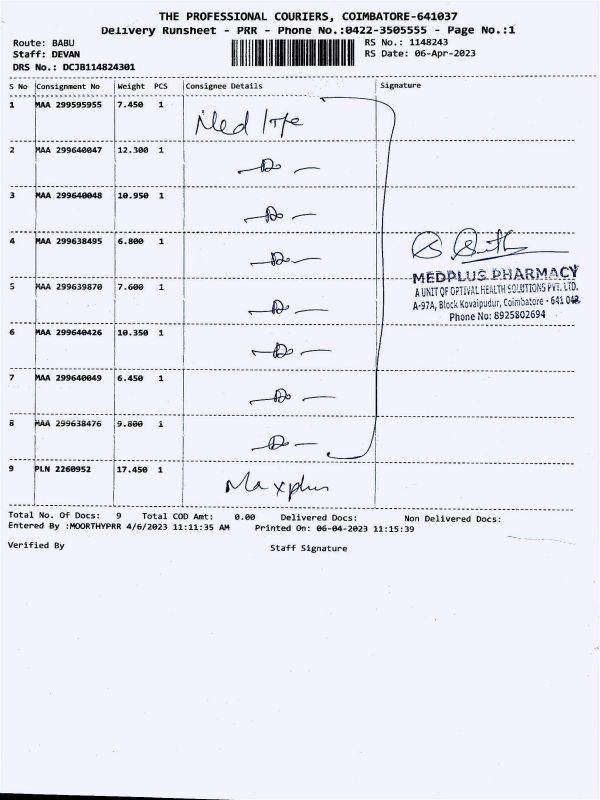 THE PROFESSIONAL COURIERS, COIMBATORE-641037
Delivery Runsheet - PRR - Phone No.:0422-3505555 - Page No.:1
Route: BABU RS No.: 1148243
Staff: DEVAN RS Date: 06-Apr-2023
DRS No.: DCJB114824301
S No Consignment No Weight PCS Consignee Details Signature
1 MAA 299595955 7.450 1 Med life
2 MAA 299640047 12.300 1 - Do -
3 MAA 299640048 10.950 1 - Do -
4 MAA 299638495 6.800 1 - Do -
5 MAA 299639870 7.600 1 - Do -
6 MAA 299640426 10.350 1 - Do -
7 MAA 299640049 6.450 1 - Do -
8 MAA 299638476 9.800 1 - Do -
9 PLN 2260952 17.450 1 Maxplus
MEDPLUS PHARMACY
A UNIT OF OPTIVAL HEALTH SOLUTIONS PVT. LTD.
A-97A, Block Kovaipudur, Coimbatore - 641 042.
Phone No: 8925802694
Total No. Of Docs: 9 Total COD Amt: 0.00 Delivered Docs: Non Delivered Docs:
Entered By :MOORTHYPRR 4/6/2023 11:11:35 AM Printed On: 06-04-2023 11:15:39
Verified By Staff Signature